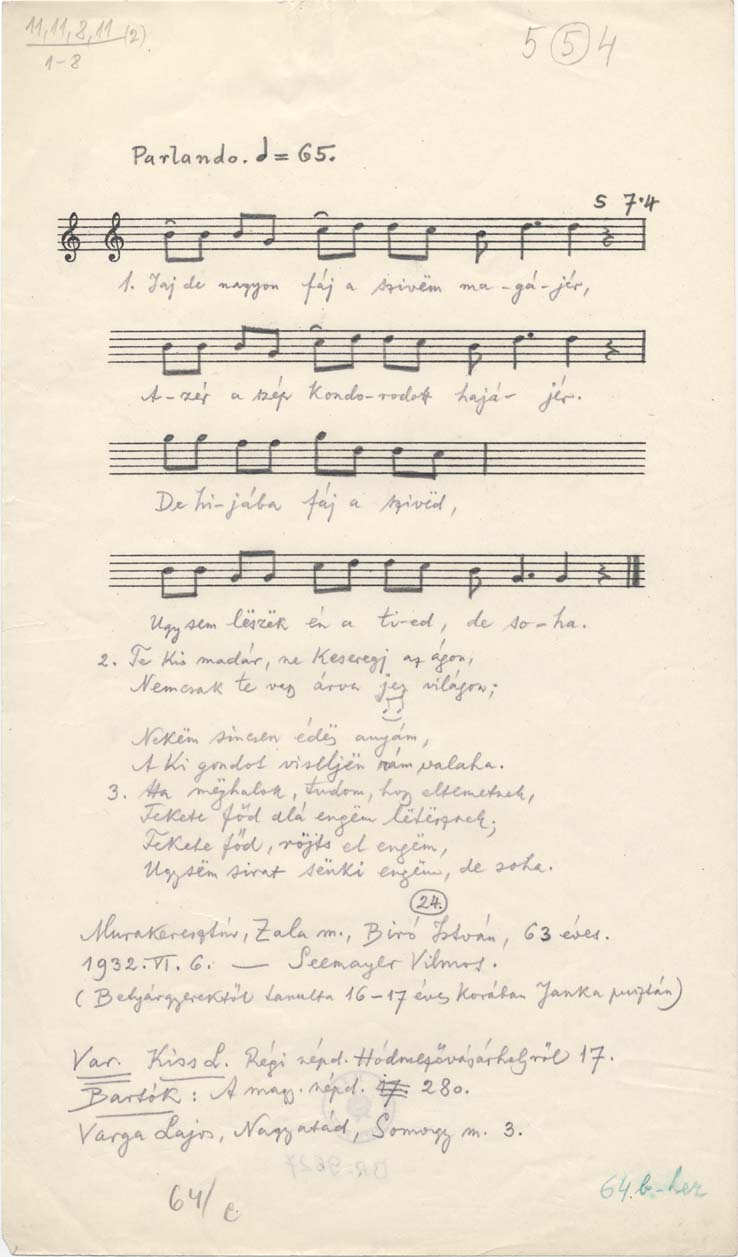 11, 11, 8, 11 (2)
1-8
5 5 4
Parlando. = 65.
5 7·4
1. Jaj de nagyon fáj a szivëm ma-gá-jér,
A-zér a szép kondo-rodott hajá- jér.
De hi-jába fáj a szivëd,
Ugysem lëszëk én a ti-ed, de so-ha.
2. Te kis madár, ne keseregj az ágon,
Nemcsak te vagy árva világon;
Nekëm sincsen édës anyám,
A ki gondot viselljën rám valaha.
3. Ha mëghalok, tudom, hogy eltemetnek,
Fekete főd alá engëm tësznek;
Fekete főd, röjts el engëm,
Ugysëm sirat sënki engëm, de soha.
24.
Murakeresztúr, Zala m., Biró István, 63 éves.
1932. VI. 6. — Seemayer Vilmos.
(Betyárgyerektől tanulta 16-17 éves korában Janka pusztán)
Var. Kiss L. Régi népd. Hódmezővásárhelyről 17.
Bartók: A magy. népd. 280.
Varga Lajos, Nagyatád, Somogy m. 3.
BR: 9627
64/c
64.b-hez